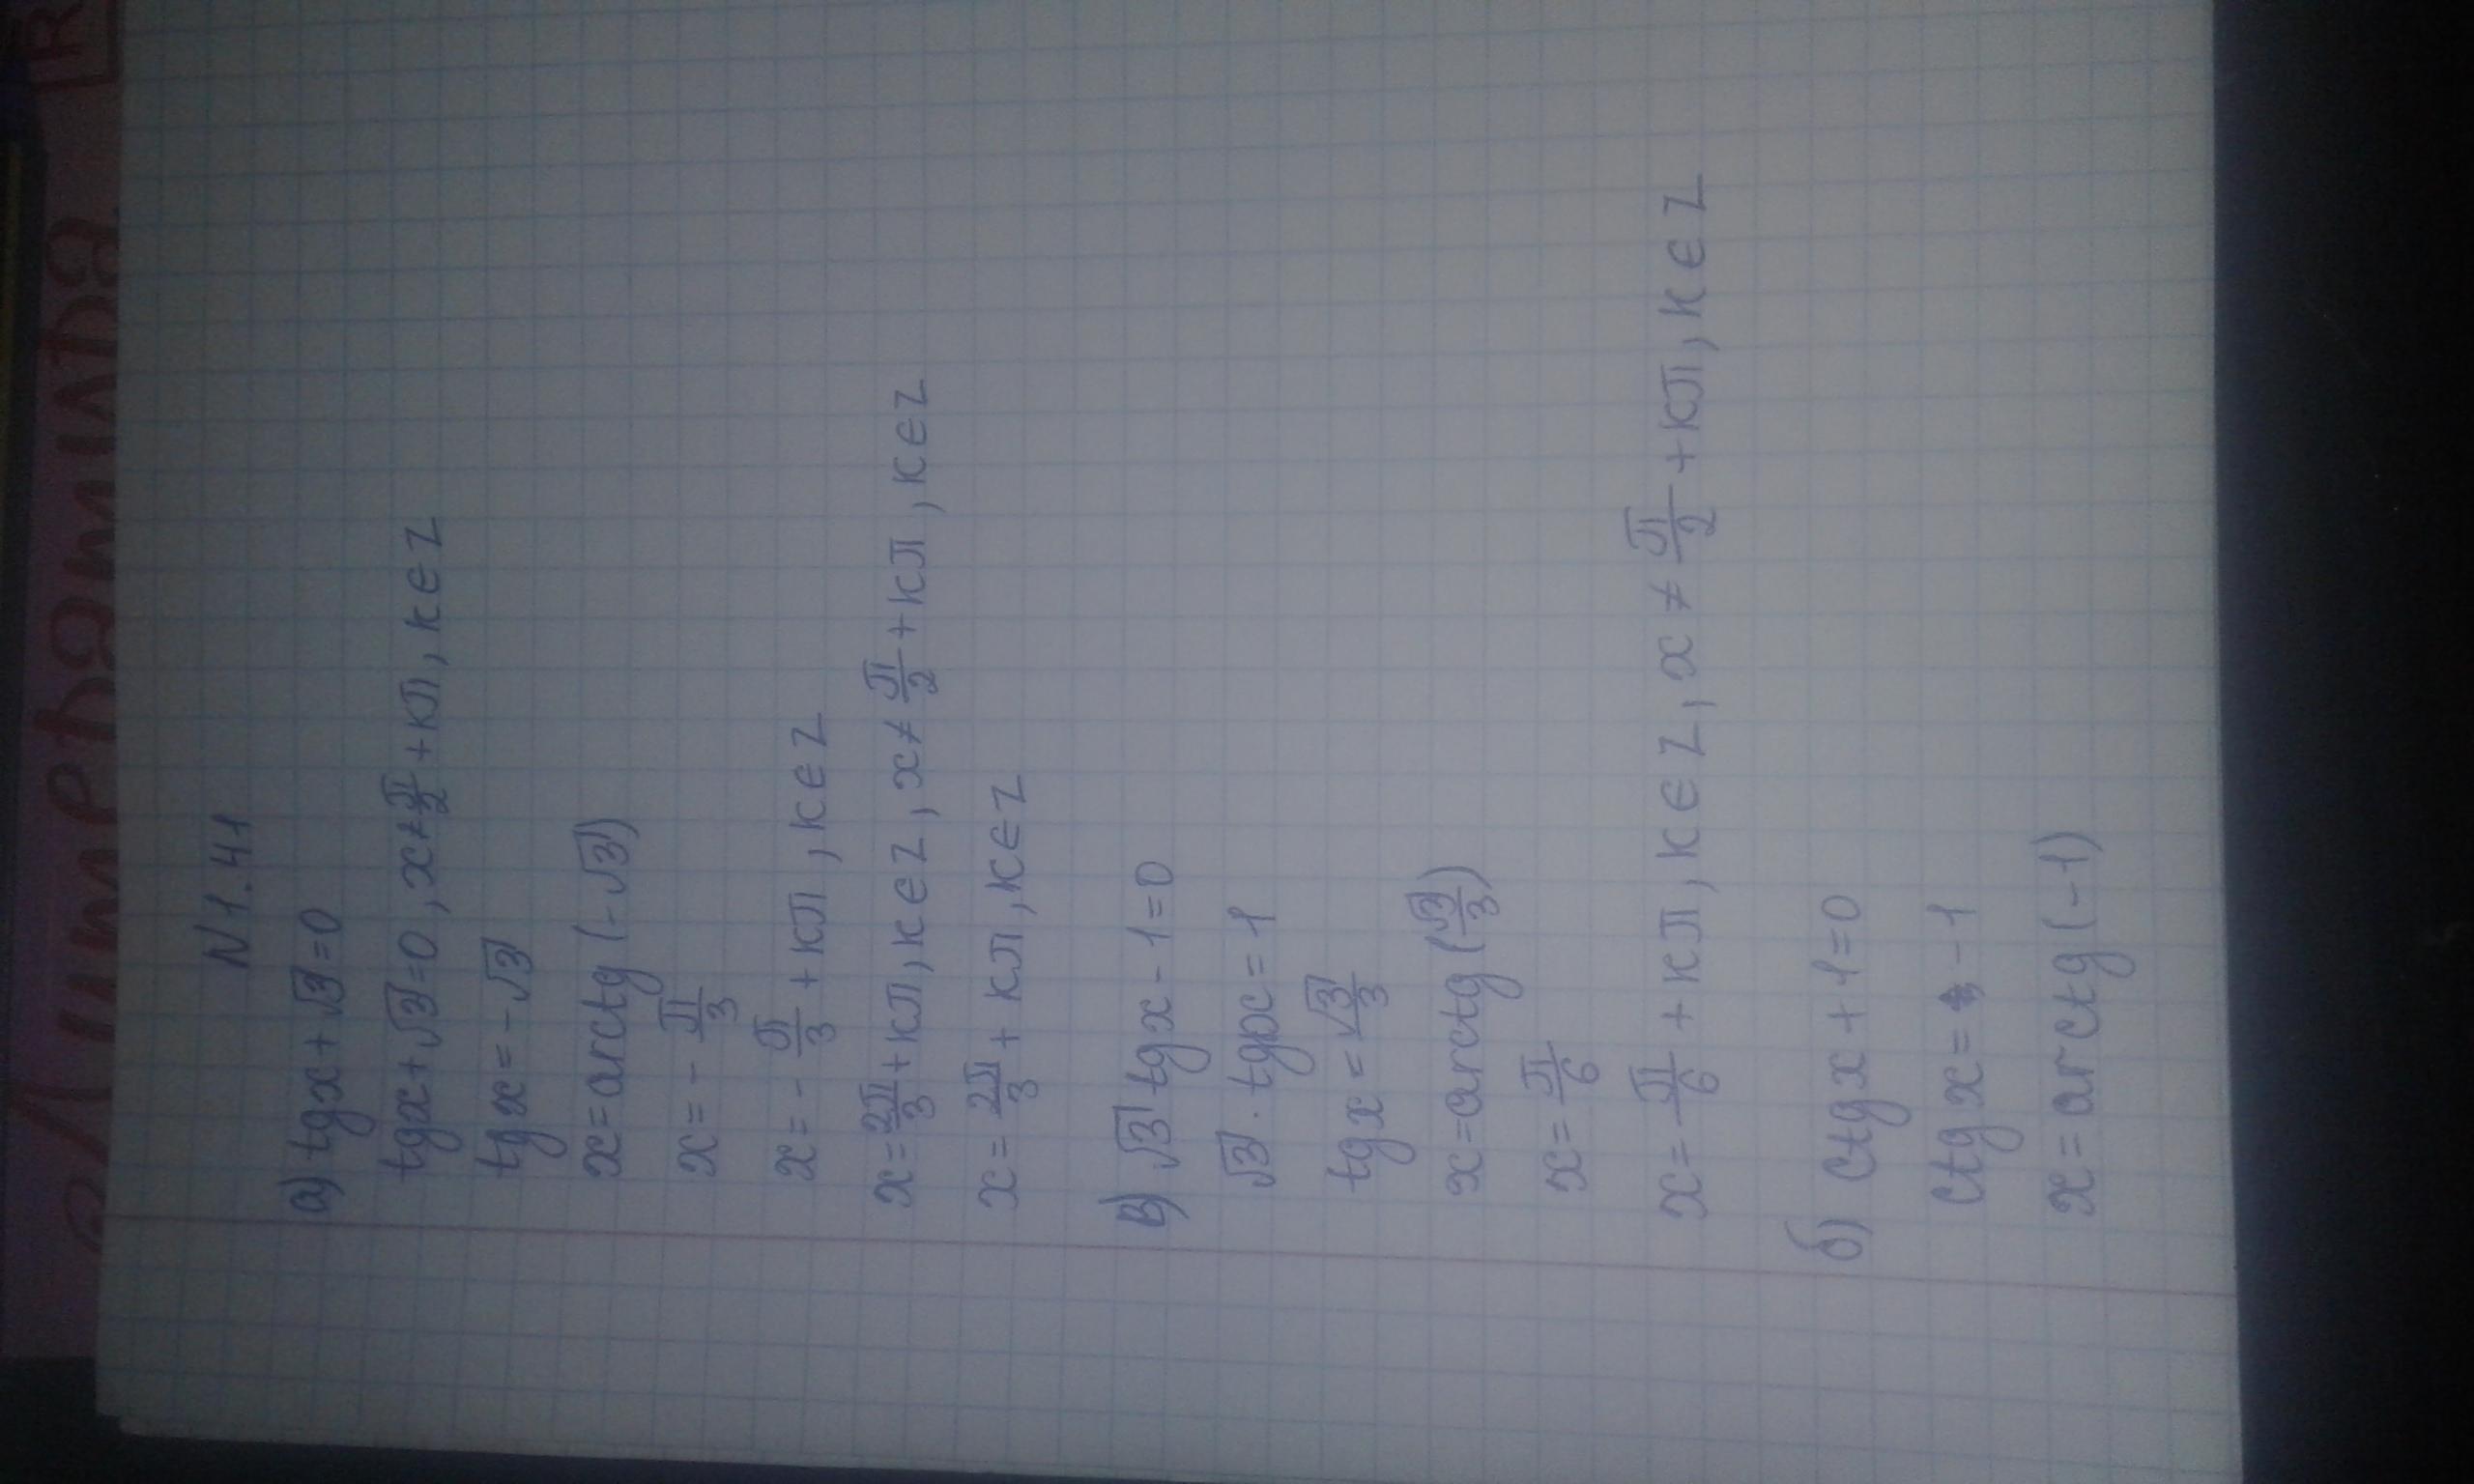 N 1.41
а) tgx+√3=0
tgx+√3=0, x≠π/2+кπ, к∈Z
tgx=-√3
x=arctg(-√3)
x=-π/3
x=-π/3+кπ, к∈Z
x=2π/3+кπ, к∈Z, x≠π/2+кπ, к∈Z
x=2π/3+кπ, к∈Z
в) √3 tgx-1=0
√3·tgx=1
tgx=√3/3
x=arctg(√3/3)
x=π/6
x=π/6+кπ, к∈Z, x≠π/2+кπ, к∈Z
б) ctgx+1=0
ctgx=-1
x=arcctg(-1)